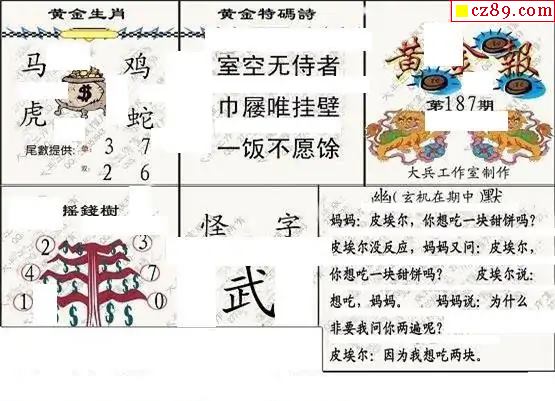 cz89.com
黄金生肖
马 鸡
虎 蛇
$
尾數提供: 单: 3 7
双: 2 6
黄金特碼詩
室空无侍者
巾屦唯挂壁
一饭不愿馀
黄金報
第187期
大兵工作室制作
摇錢樹
2 3
4 7
1 0
怪 字
武
幽(玄机在期中)默
妈妈：皮埃尔，你想吃一块甜饼吗？
皮埃尔没反应，妈妈又问：皮埃尔，
你想吃一块甜饼吗？ 皮埃尔说：
想吃，妈妈。 妈妈说：为什么
非要我问你两遍呢？
皮埃尔：因为我想吃两块。